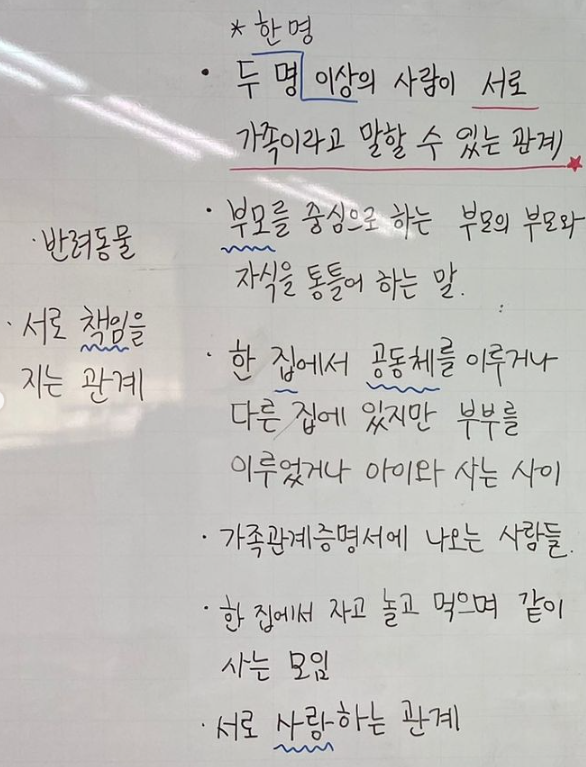 * 한 명
· 두 명 이상의 사람이 서로
가족이라고 말할 수 있는 관계
· 부모를 중심으로 하는 부모의 부모와
자식을 통틀어 하는 말.
· 한 집에서 공동체를 이루거나
다른 집에 있지만 부부를
이루었거나 아이와 사는 사이
· 가족관계증명서에 나오는 사람들.
· 한 집에서 자고 놀고 먹으며 같이
사는 모임
· 서로 사랑하는 관계
· 반려동물
· 서로 책임을
지는 관계